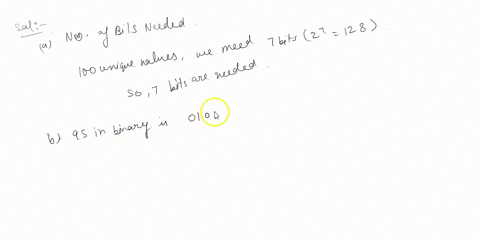 Sol:-
(a) No. of Bits Needed.
100 unique values, we need 7 bits (2^7 = 128).
so, 7 bits are needed.
b) 95 in binary is 010